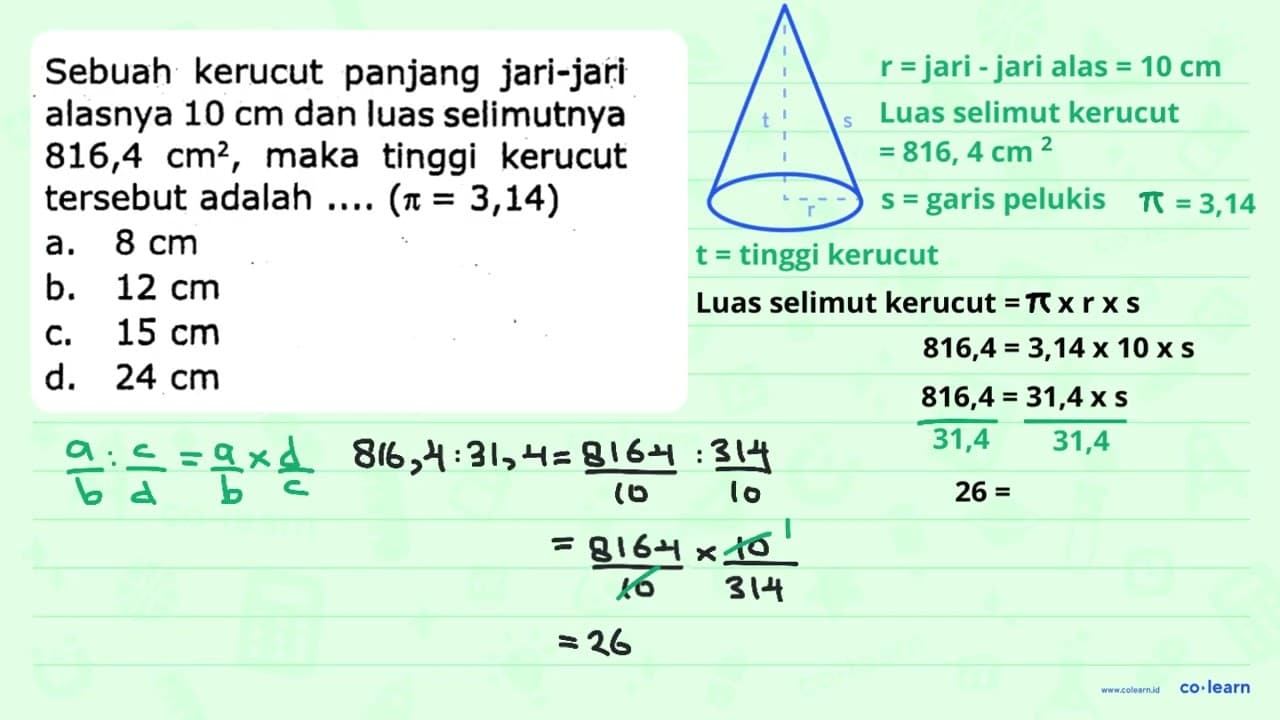 Sebuah kerucut panjang jari-jari
alasnya 10 cm dan luas selimutnya
816,4 cm², maka tinggi kerucut
tersebut adalah .... (π = 3,14)
a. 8 cm
b. 12 cm
c. 15 cm
d. 24 cm
t
s
r
r = jari - jari alas = 10 cm
Luas selimut kerucut
= 816, 4 cm ²
s = garis pelukis π = 3,14
t = tinggi kerucut
Luas selimut kerucut = π x r x s
816,4 = 3,14 x 10 x s
816,4 = 31,4 x s
31,4 31,4
26 =
a/b : c/d = a/b × d/c
816,4 : 31,4 = 8164/10 : 314/10
= 8164/10 × 10/314 1
= 26
www.colearn.id co·learn